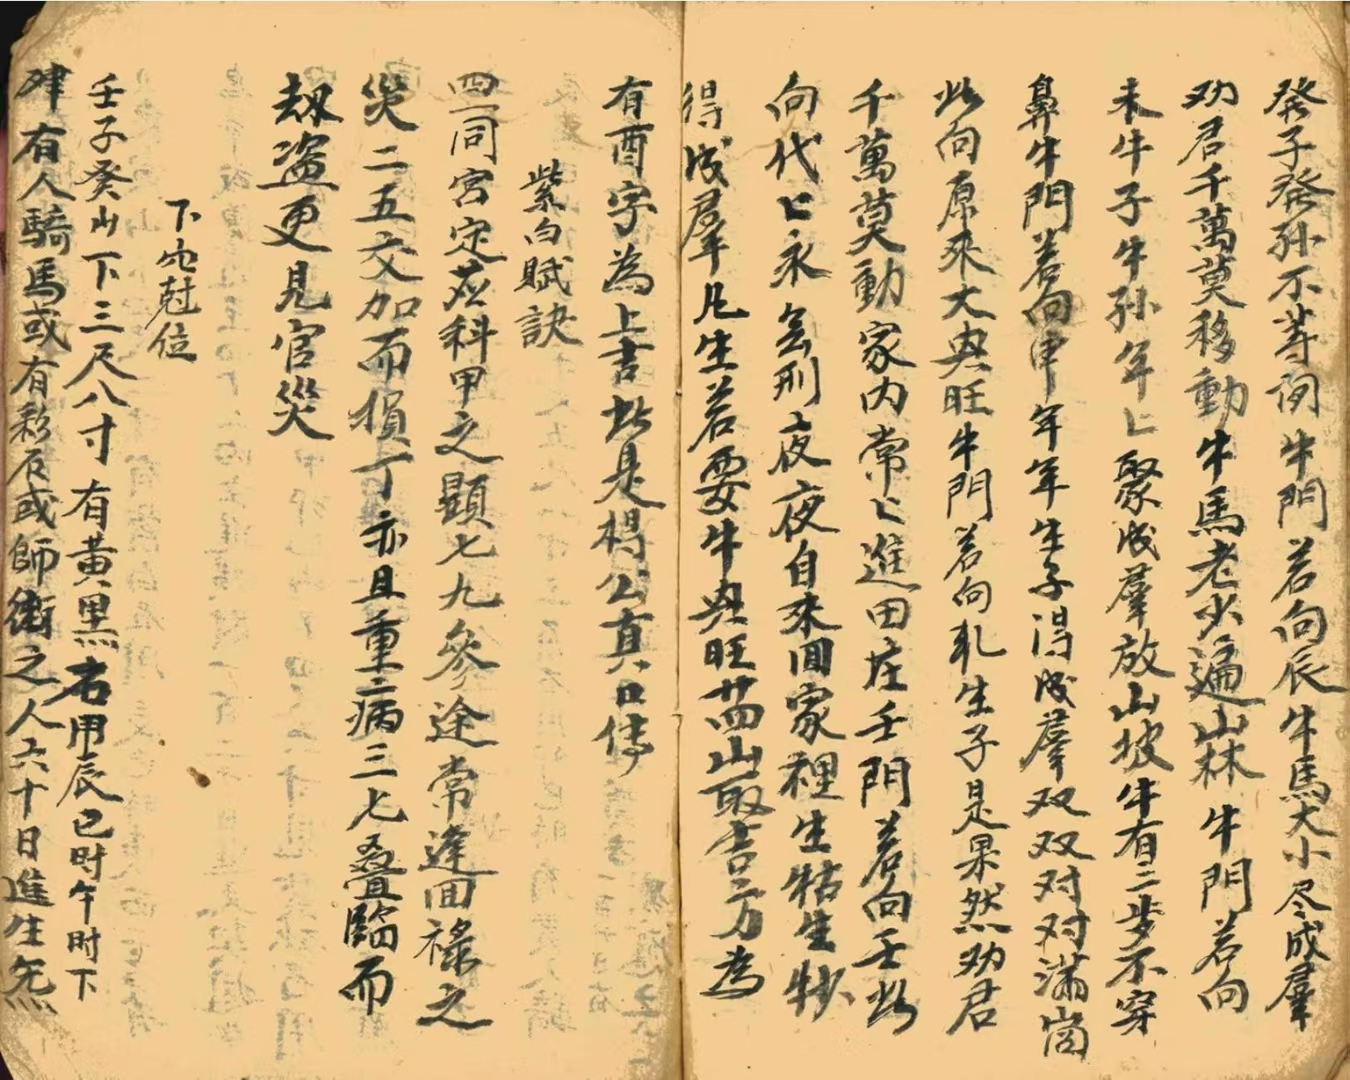 發子發孙不等闲牛門若向辰牛馬大小尽成羣
劝君千萬莫移動牛馬老少遍山林牛門若向
未牛子牛孙年匕聚成羣放山坡牛有二步不穿
鼻牛門若向申年年生子得成羣双双对对满崗
此向原來大興旺牛門若向乳生子是果然劝君
千萬莫動家内常匕進田庄壬門若向壬此
向代匕永刑夜夜自來囬家裡生牯生牸
得成羣凡生若要牛興旺廿四山取吉方為
有酉字為上吉此是楊公真口傳
紫白賦訣
四一同宮定应科甲之顯七九參途常逢囬祿之
災二五交加而損丁亦且重病三七叠臨而
刼盗更見官災
下穴尅位
壬子癸山下三尺八寸有黃黑石用辰巳时午时下
肂有人騎馬或有彩衣或師術之人六十日進生炁